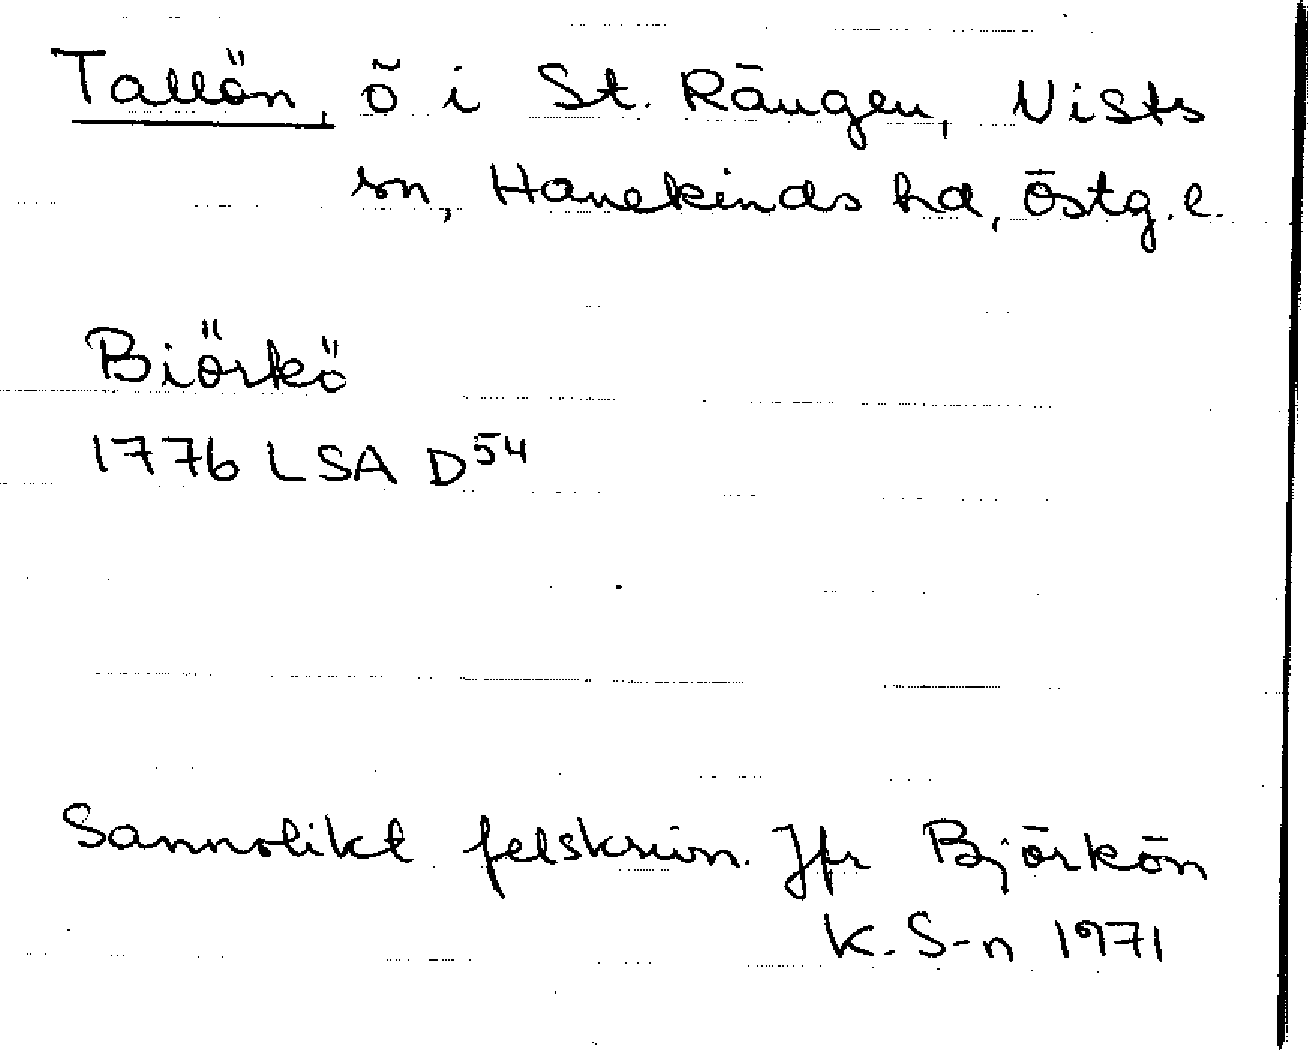 Tallön, ö i St. Rängen, Vists
sn, Hanekinds hd, Östg.l.
Biörkö
1776 LSA D54
Sannolikt felskrivn. Jfr Björkön
K. S-n 1971